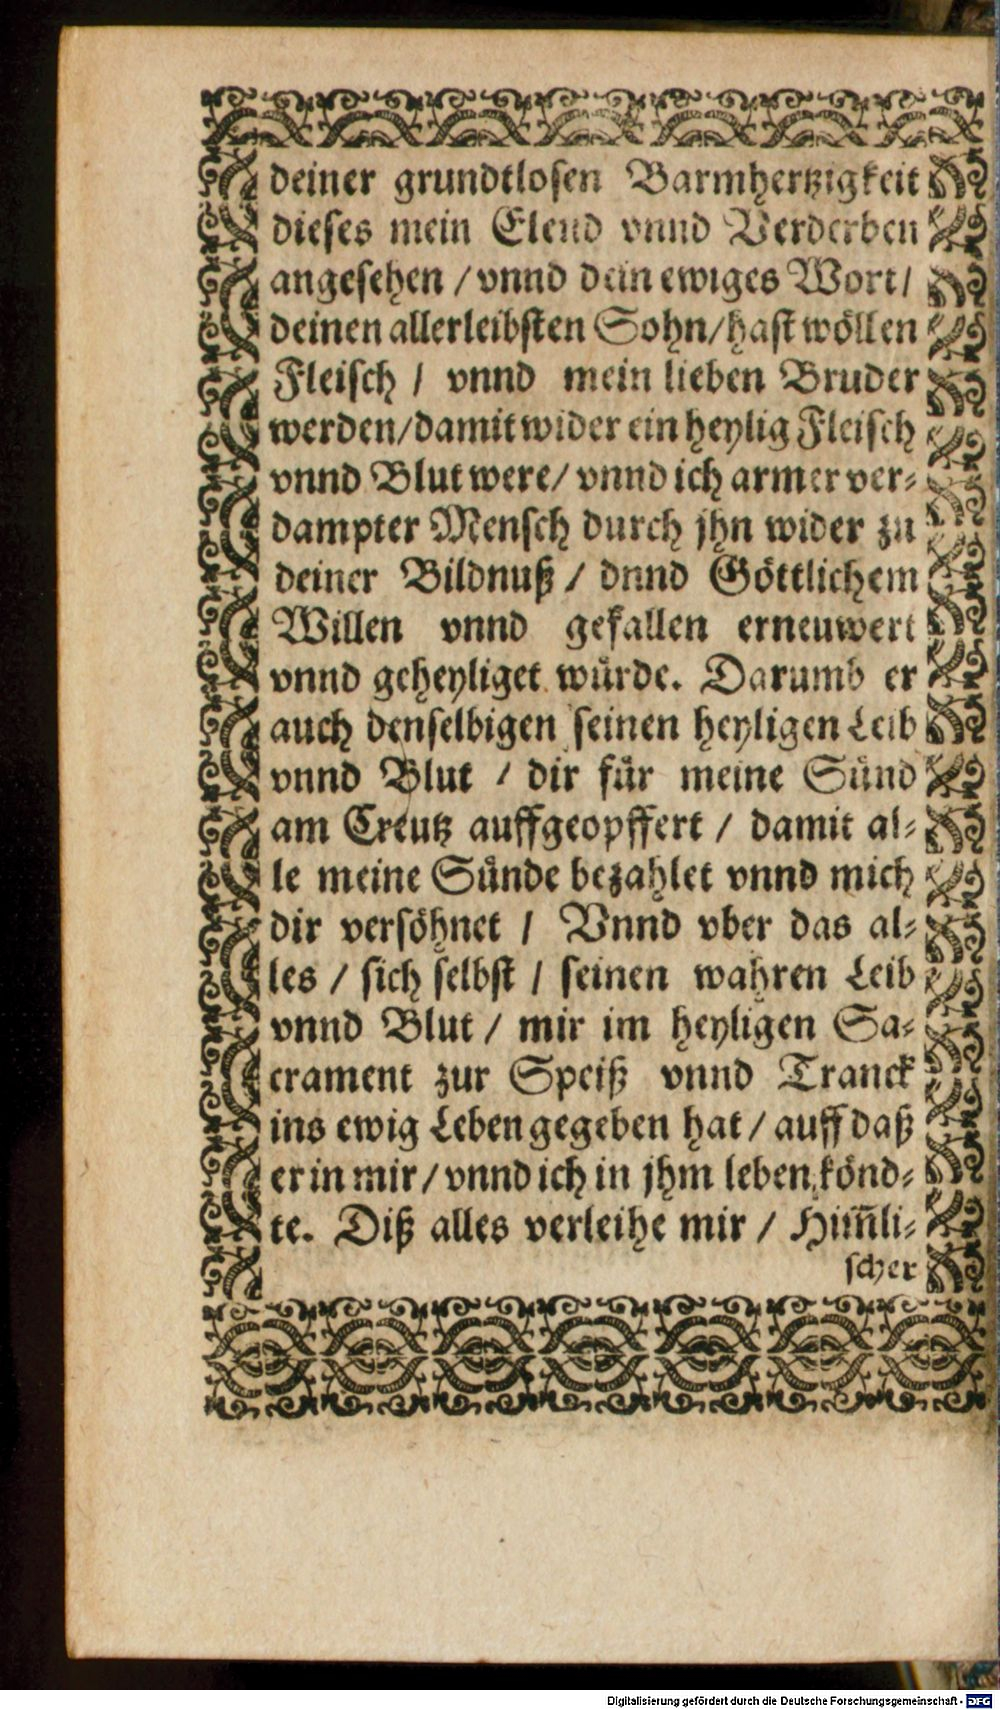 deiner grundtlosen Barmhertzigkeit
dieses mein Elend vnnd Verderben
angesehen / vnnd dein ewiges Wort /
deinen allerleibsten Sohn / hast wöllen
Fleisch / vnnd mein lieben Bruder
werden / damit wider ein heylig Fleisch
vnnd Blut were / vnnd ich armer ver-
dampter Mensch durch jhn wider zu
deiner Bildnuß / dnnd Göttlichem
Willen vnnd gefallen erneuwert
vnnd geheyliget würde. Darumb er
auch denselbigen seinen heyligen Leib
vnnd Blut / dir für meine Sünd
am Creutz auffgeopffert / damit al-
le meine Sünde bezahlet vnnd mich
dir versöhnet / Vnnd vber das al-
les / sich selbst / seinen wahren Leib
vnnd Blut / mir im heyligen Sa-
crament zur Speiß vnnd Tranck
ins ewig Leben gegeben hat / auff daß
er in mir / vnnd ich in jhm leben könd-
te. Diß alles verleihe mir / Him̄li-
scher
Digitalisierung gefördert durch die Deutsche Forschungsgemeinschaft - DFG